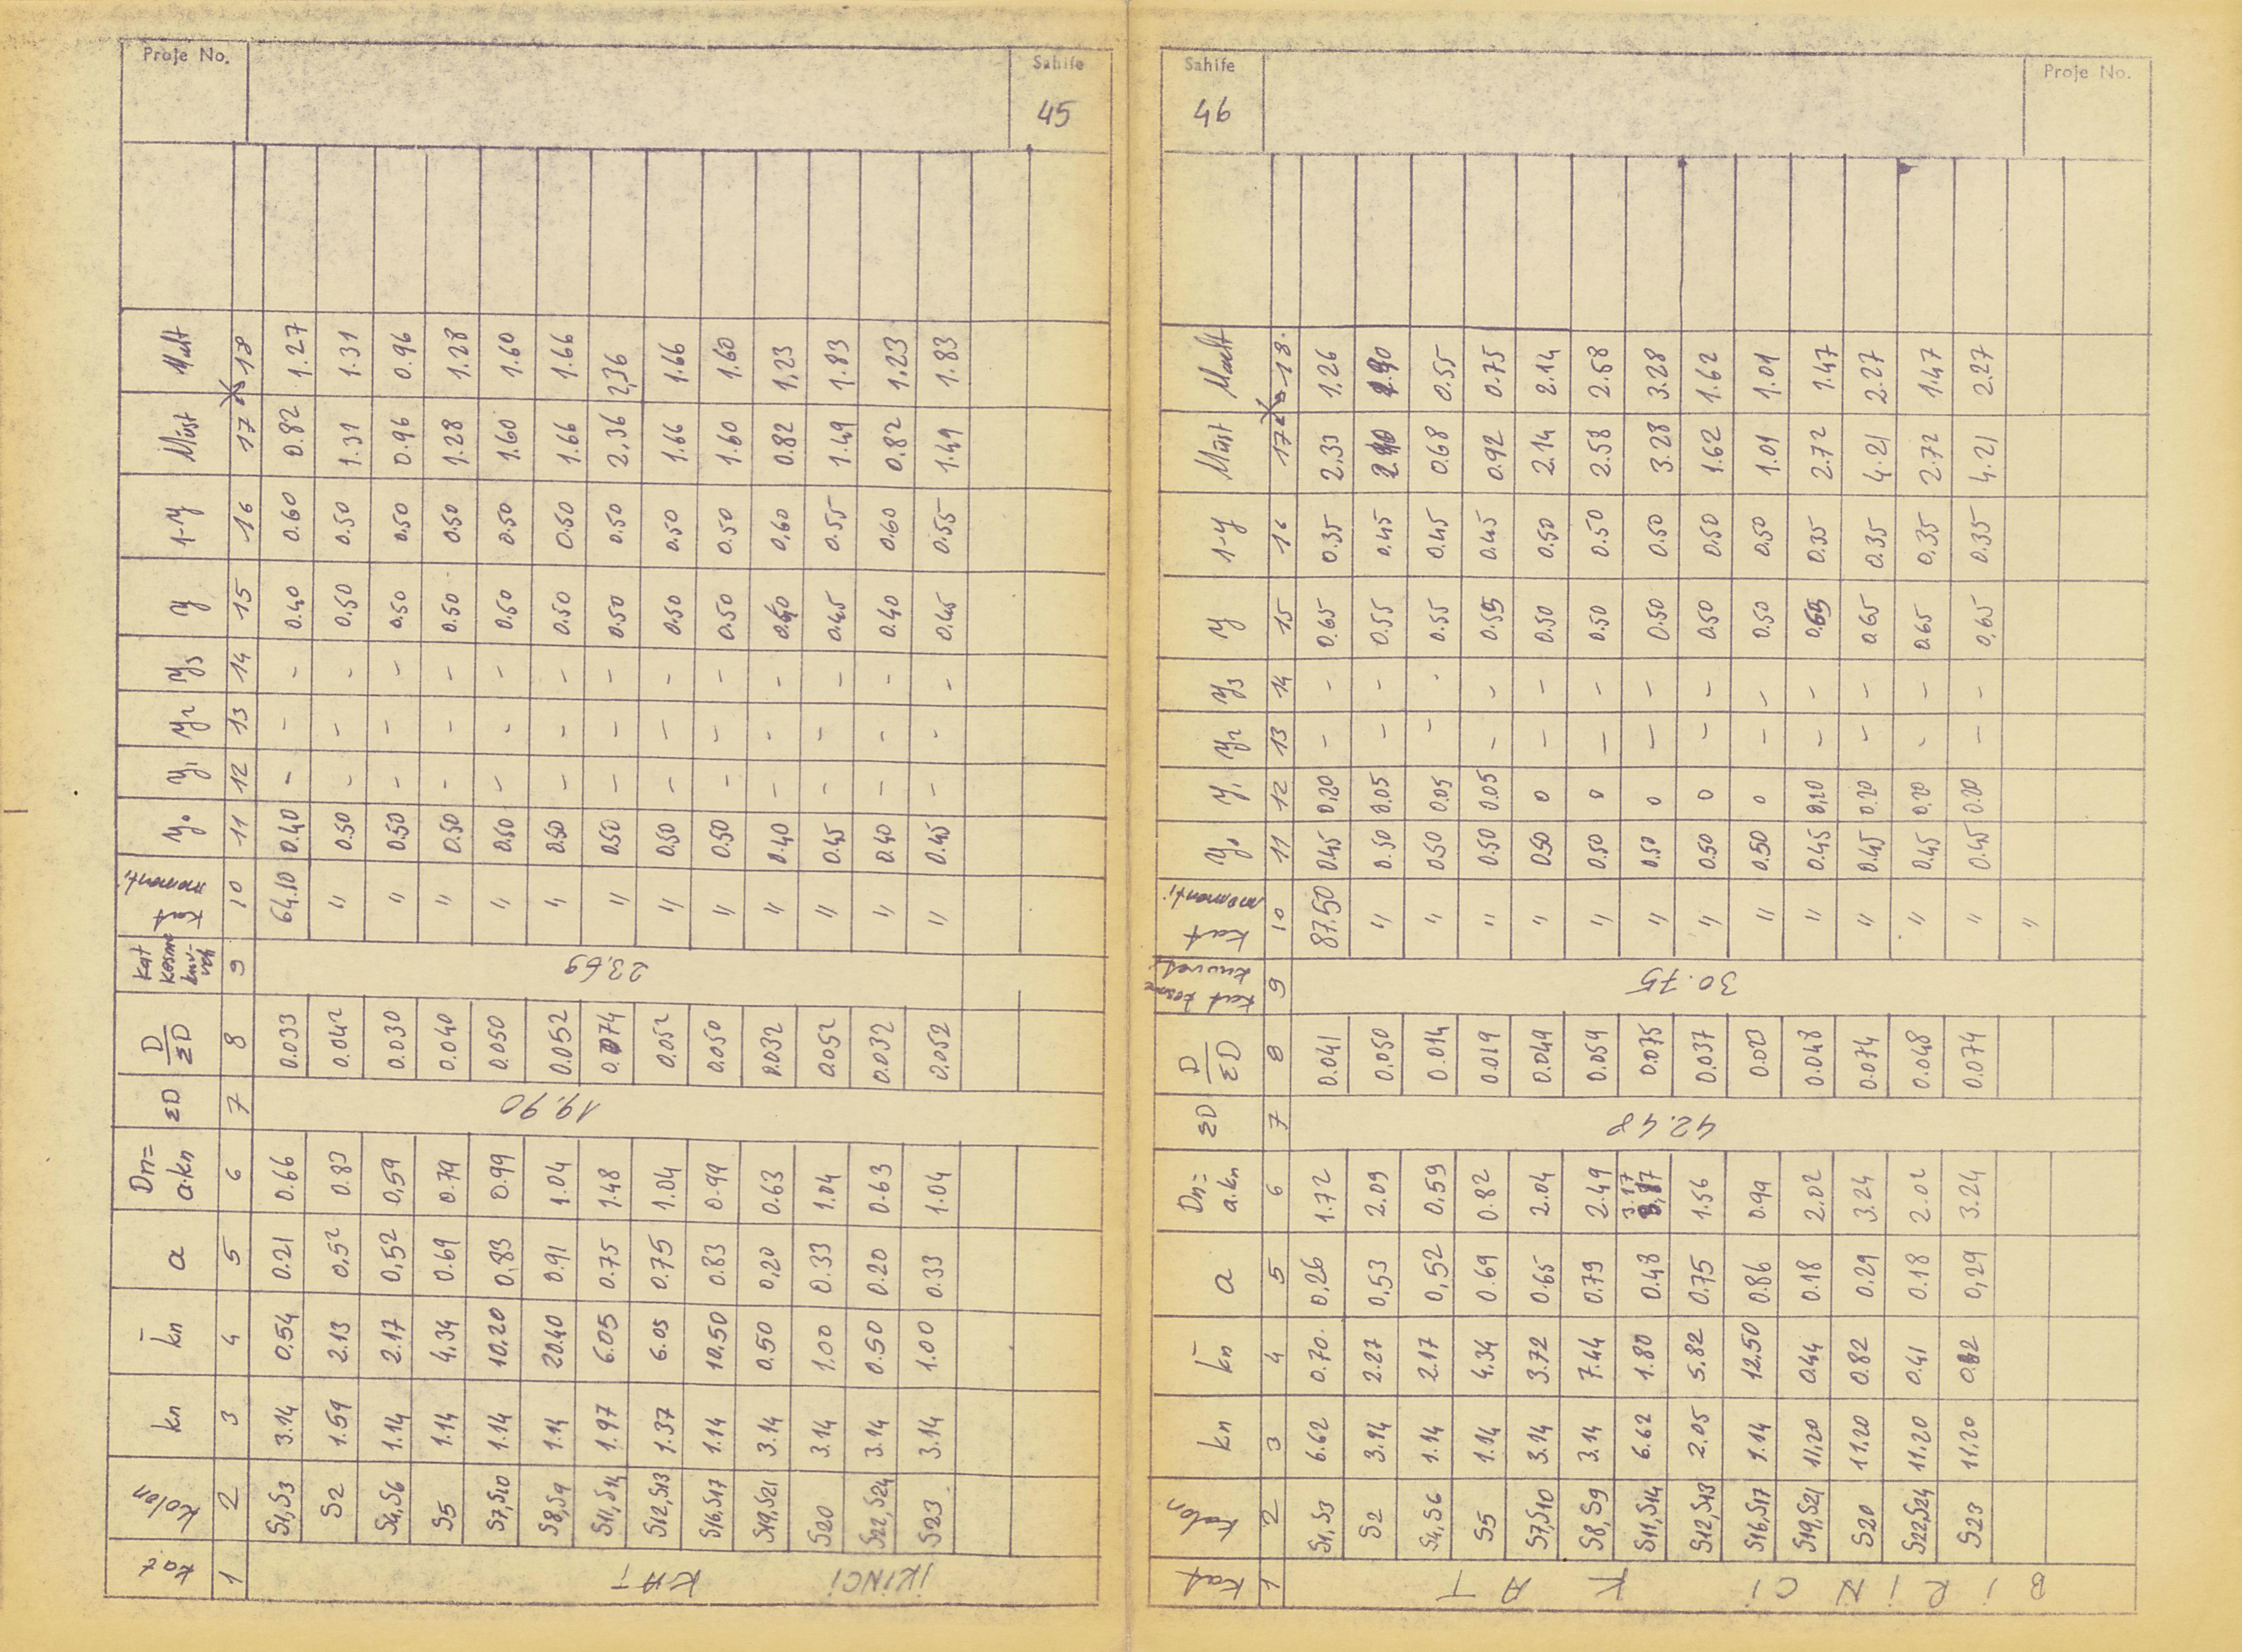 Proje No.
Sahife
45
kat kolon kn k̄n a Dn= a.kn ΣD D/ΣD kat kesme kuv- veti kat momenti y₀ y₁ y₂ y₃ y 1-y Müst Malt
1 2 3 4 5 6 7 8 9 10 11 12 13 14 15 16 17 18
İKİNCİ KAT
19.90
23.69
S1,S3 3.14 0.54 0.21 0.66 0.033 64.10 0.40 - - - 0.40 0.60 0.82 1.27
S2 1.59 2.13 0,52 0.83 0.042 " 0.50 - - - 0.50 0.50 1.31 1.31
S4,S6 1.14 2.17 0,52 0,59 0.030 " 0.50 - - - 0.50 0.50 0.96 0.96
S5 1.14 4,34 0.69 0.79 0.040 " 0.50 - - - 0.50 0.50 1.28 1.28
S7,S10 1.14 10,20 0,83 0.99 0.050 " 0.50 - - - 0.50 0.50 1.60 1.60
S8,S9 1.14 20.40 0.91 1.04 0.052 " 0.50 - - - 0.50 0.50 1.66 1.66
S11,S14 1.97 6.05 0.75 1.48 0.074 " 0.50 - - - 0.50 0.50 2,36 2,36
S12,S13 1.37 6.05 0.75 1.04 0.052 " 0.50 - - - 0.50 0.50 1.66 1.66
S16,S17 1.14 10.50 0.83 0.99 0.050 " 0.50 - - - 0.50 0.50 1.60 1.60
S19,S21 3.14 0.50 0,20 0.63 0.032 " 0.40 - - - 0.40 0,60 0.82 1,23
S20 3.14 1.00 0.33 1.04 0.052 " 0.45 - - - 0.45 0.55 1.49 1.83
S22,S24 3.14 0.50 0.20 0.63 0.032 " 0.40 - - - 0.40 0.60 0.82 1.23
S23 3.14 1.00 0.33 1.04 0.052 " 0.45 - - - 0.45 0.55 1.49 1.83
Sahife
46
Proje No.
Kat kolon kn k̄n a Dn= a.kn ΣD D/ΣD kat kesme kuvveti kat momenti y₀ y₁ y₂ y₃ y 1-y Müst Maalt
1 2 3 4 5 6 7 8 9 10 11 12 13 14 15 16 17 18.
BİRİNCİ KAT
42.48
30.75
S1,S3 6.62 0.70. 0,26 1.72 0.041 87.50 0.45 0,20 - - 0.65 0.35 2.33 1,26
S2 3.14 2.27 0,53 2.09 0.050 " 0.50 0.05 - - 0.55 0.45
S4,S6 1.14 2.17 0,52 0.59 0.014 " 0.50 0.05 - - 0.55 0.45 0.68 0.55
S5 1.14 4.34 0.69 0.82 0.019 " 0.50 0.05 - - 0.55 0.45 0.92 0.75
S7,S10 3.14 3.72 0.65 2.04 0.049 " 0.50 0 - - 0.50 0.50 2.14 2.14
S8,S9 3.14 7.44 0.79 2.49 0.059 " 0.50 0 - - 0.50 0.50 2.58 2.58
S11,S14 6.62 1.80 0.48 3.17 0.075 " 0.50 0 - - 0.50 0.50 3.28 3.28
S12,S13 2.05 5.82 0.75 1.56 0.037 " 0.50 0 - - 0.50 0.50 1.62 1.62
S16,S17 1.14 12,50 0.86 0.99 " 0.50 0 - - 0.50 0.50 1.01 1.01
S19,S21 11,20 0.44 0.18 2.02 0.048 " 0.45 0,20 - - 0.65 0.35 2.72 1.47
S20 11.20 0.82 0.29 3.24 0.074 " 0.45 0.20 - - 0.65 0.35 4.21 2.27
S22,S24 11.20 0.41 0.18 2.02 0.048 " 0.45 0.20 - - 0.65 0.35 2.72 1.47
S23 11.20 0.82 0,29 3.24 0.074 " 0.45 0.20 - - 0.65 0.35 4.21 2.27
"